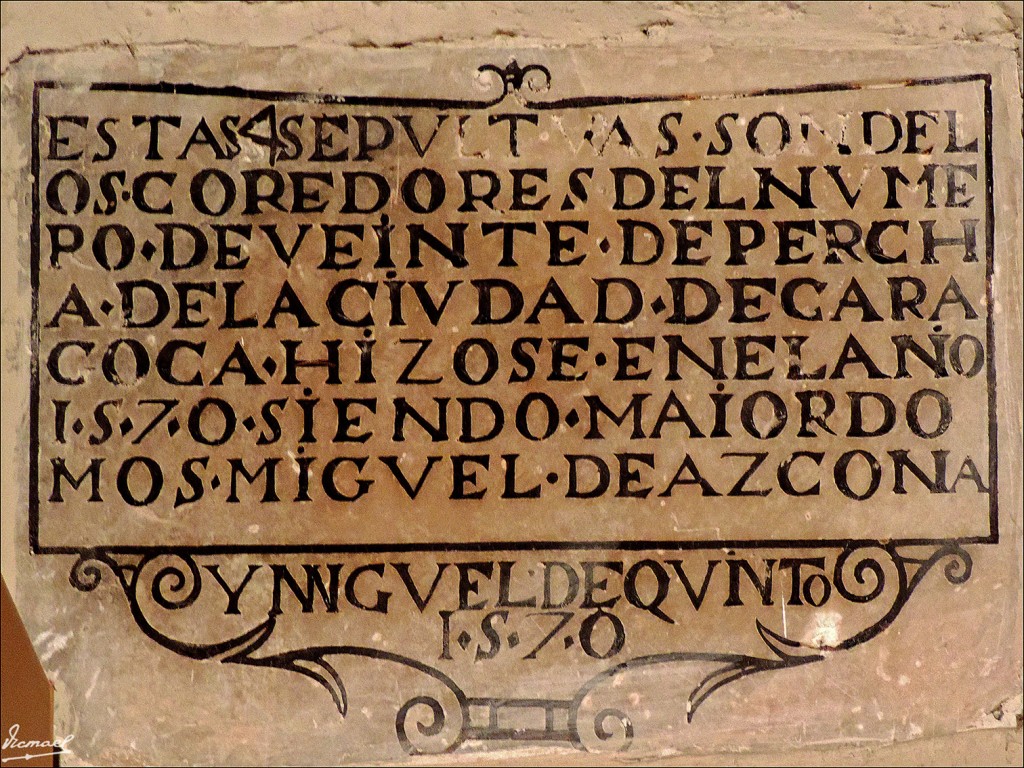 ESTAS 4 SEPVLTVAS·SON DEL
OS·COREDORES DEL NVME
PO·DE VEINTE·DE PERCH
A·DE LA CIVDAD·DE CARA
GOCA·HIZOSE·EN EL AÑO
1·5·7·0·SIENDO·MAIORDO
MOS·MIGVEL·DE AZCONA
Y MIGVEL·DE QVINTO
1·5·7·0
Vicmael